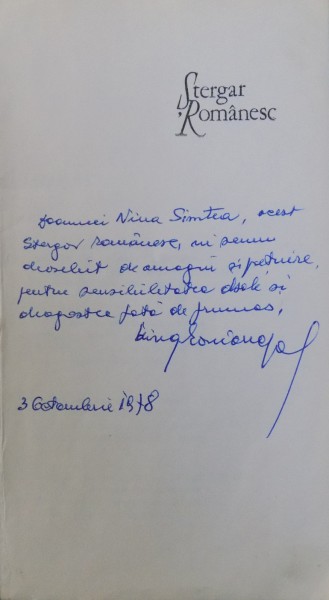 Ștergar
Românesc
Doamnei Nina Simtea, acest
Ștergar românesc, in semn
deosebit de omagiu și prețuire,
pentru sensibilitatea dsale și
dragostea față de frumos,
3 Octombrie 1978